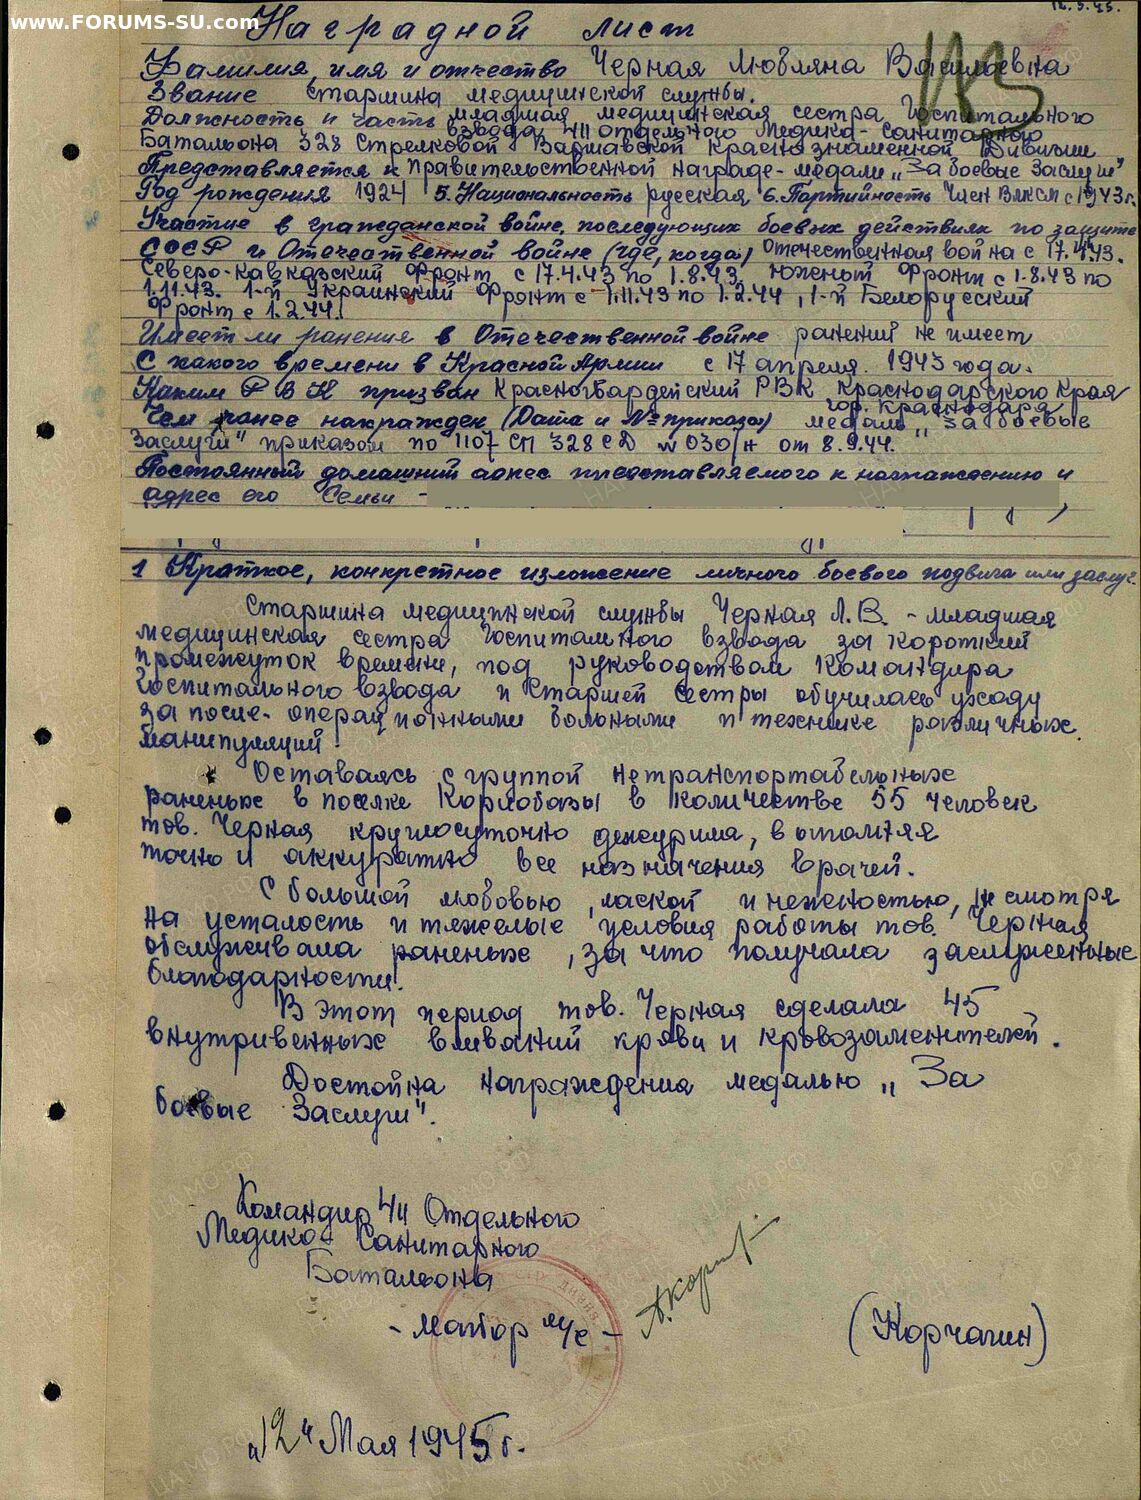 www.FORUMS-SU.com
12.5.45.
Наградной лист
Фамилия, имя и отчество Черная Любляна Васильевна
Звание старшина медицинской службы.
Должность и часть младшая медицинская сестра Госпитального
взвода 411 отдельного Медико-Санитарного
Батальона 328 Стрелковой Варшавской Краснознаменной Дивизии
Представляется к Правительственной награде - медали „За боевые Заслуги"
Год рождения 1924 5. Национальность русская 6. Партийность Член ВЛКСМ с 1943г.
Участие в гражданской войне, последующих боевых действиях по защите
СССР и Отечественной войне (где, когда) Отечественная война с 17.4.43.
Северо-Кавказский Фронт с 17.4.43 по 1.8.43, Южный Фронт с 1.8.43 по
1.11.43. 1-й Украинский Фронт с 1.11.43 по 1.2.44, 1-й Белорусский
Фронт с 1.2.44.
Имеет ли ранения в Отечественной войне ранений не имеет
С какого времени в Красной Армии с 17 апреля 1943 года.
Каким Р В К призван Красногвардейский РВК Краснодарского Края
гор. Краснодара
Чем ранее награжден (Дата и № приказа) медаль „За боевые
Заслуги" приказом по 1107 СП 328 СД № 030/н от 8.9.44.
Постоянный домашний адрес представляемого к награждению и
адрес его Семьи -
1 Краткое, конкретное изложение личного боевого подвига или заслуг.
Старшина медицинской службы Черная Л.В. - младшая
медицинская сестра Госпитального взвода за короткий
промежуток времени, под руководством Командира
Госпитального взвода и Старшей Сестры обучилась уходу
за после-операционными больными и технике различных
манипуляций.
Оставаясь с группой нетранспортабельных
раненых в поселке в количестве 55 человек
тов. Черная круглосуточно дежурила, выполняя
точно и аккуратно все назначения врачей.
С большой любовью, лаской и нежностью, не смотря
на усталость и тяжелые условия работы тов. Черная
обслуживала раненых, за что получала заслуженные
благодарности.
В этот период тов. Черная сделала 45
внутривенных вливаний крови и кровозаменителей.
Достойна награждения медалью „За
боевые Заслуги".
Командир 411 Отдельного
Медико-Санитарного
Батальона
- майор м/с - (Корчагин)
„12" Мая 1945 г.